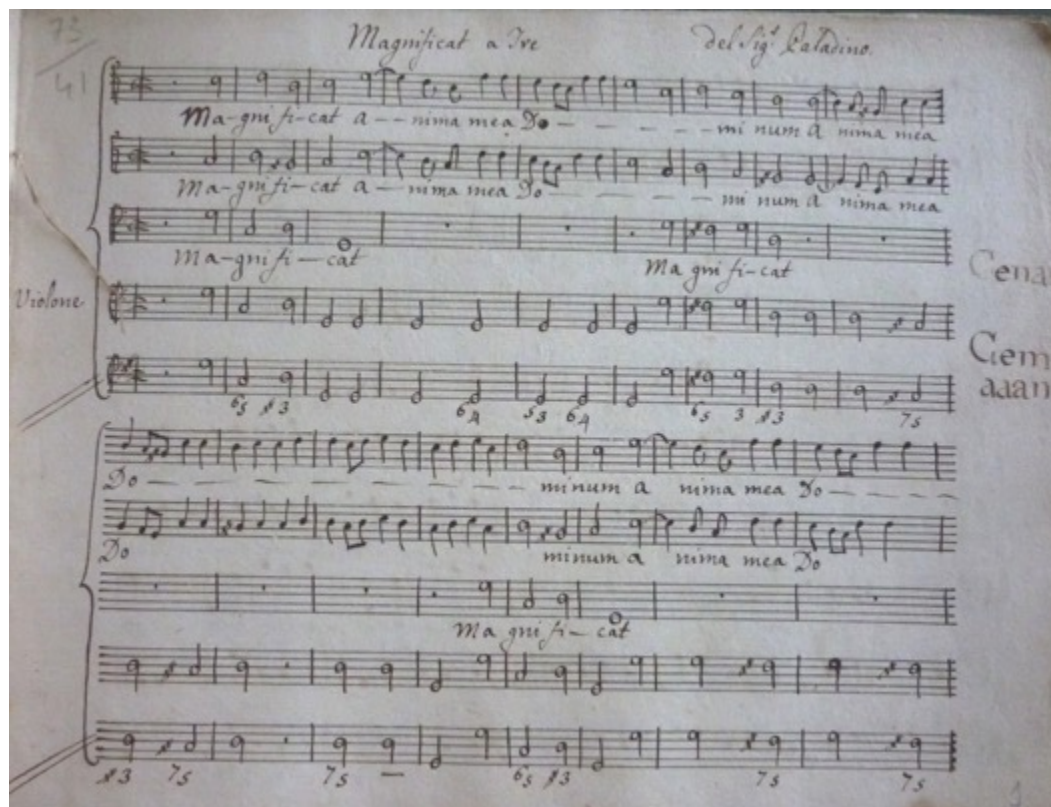 73
41
Magnificat a Tre del Sig.r Paladino.
Ma-gni fi-cat a--nima mea Do - - - - - -mi num a nima mea
Ma-gni fi-cat a- nima mea Do- - - - - - mi num a nima mea
Ma-gni fi-cat Ma gni fi-cat
Violone
65 #3 64 53 64 65 3 #3 75
Do - - - - - - - - - minum a nima mea Do - - - -
Do minum a nima mea Do
Ma gni fi-cat
#3 75 75 — 65 #3 75 75
Cena
Gem
aaan